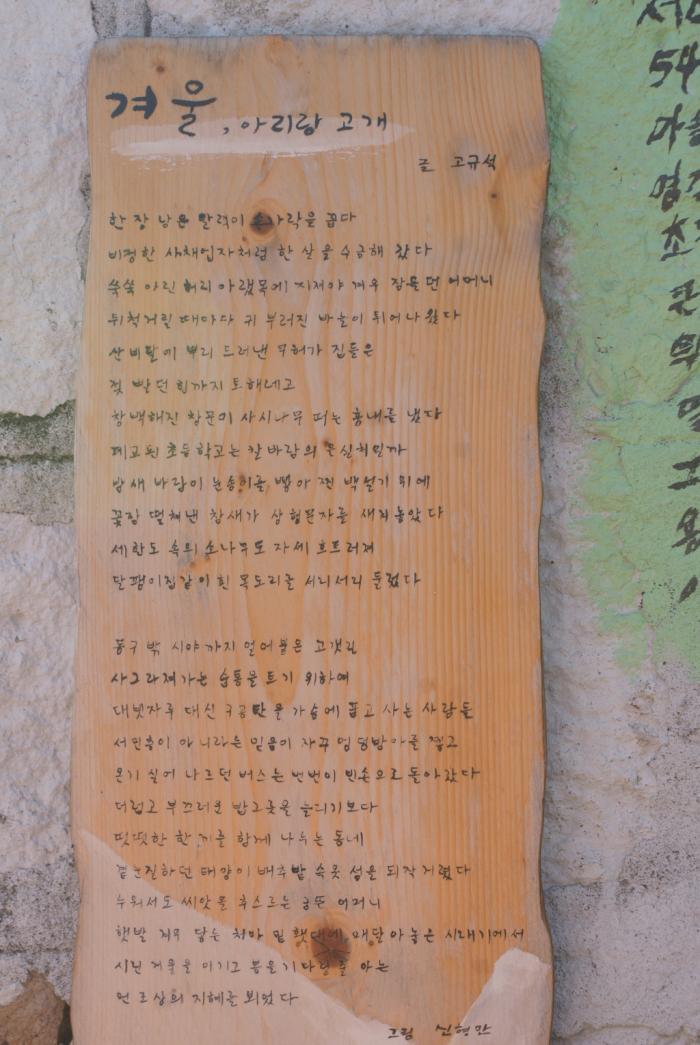 겨울, 아리랑 고개
글 고규석
한 장 남은 달력이 손가락을 꼽다
비정한 사채업자처럼 한 살을 수금해 갔다
쑥쑥 아린 허리 아랫목에 지져야 겨우 잠들던 어머니
뒤척거릴 때마다 귀 부러진 바늘이 튀어나왔다
산비탈에 뿌리 드러낸 무허가 집들은
젖 빨던 힘까지 토해내고
창백해진 창문이 사시나무 떠는 흉내를 냈다
폐교된 초등학교는 칼바람의 은실히일까
밤새 바람이 눈송이를 빻아 찐 백설기 위에
꽃잠 떨쳐낸 참새가 상형문자를 새겨놓았다
세한도 속의 소나무도 자세 흐트러져
달팽이집같이 흰 목도리를 서리서리 둘렀다
동구 밖 시야까지 얼어붙은 고갯길
사그라져가는 숨통을 트기 위하여
대빗자루 대신 구공탄을 가슴에 품고 사는 사람들
서민층이 아니라는 믿음이 자꾸 엉덩방아를 찧고
온기 실어 나르던 버스는 번번이 빈손으로 돌아갔다
더럽고 부끄러운 밥그릇을 늘리기보다
떳떳한 한 끼를 함께 나누는 동네
곁눈질하던 태양이 배추밭 속옷 섶을 되작거렸다
누워서도 씨앗을 추스르는 궁핍 어머니
햇발 겨우 닿는 처마 밑 횃대에 매달아 놓은 시래기에서
시린 겨울을 이기고 봄을 기다릴 줄 아는
먼 조상의 지혜를 뵈었다
그림 신형만